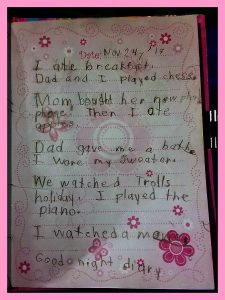 Date: Nov 24, 19
I ate breakfast.
Dad and I played chess.
Mom bought her new phone
phone. Then I ate
apples.
Dad gave me a bath
I wore my sweater.
We watched Trolls
holiday. I played the
piano.
I watched a
Good night diary